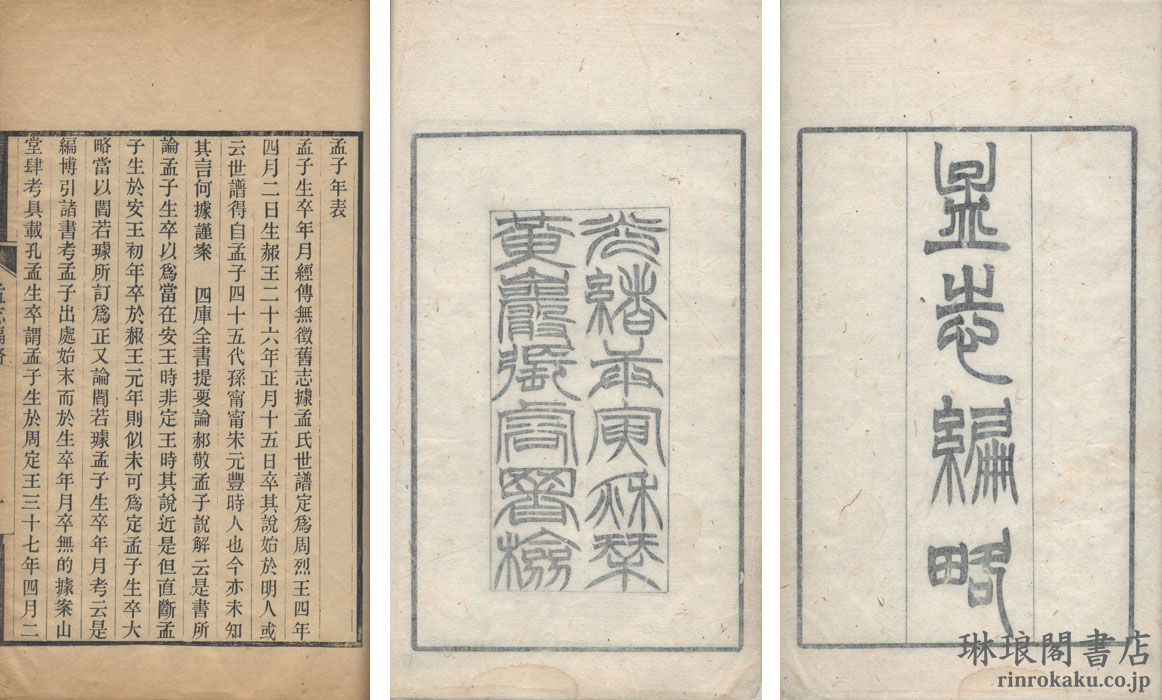 孟志編略
光緒庚寅秋栞
黃巖張署檢
孟子年表
孟子生卒年月經傳無徵舊志據孟氏世譜定爲周烈王四年
四月二日生赧王二十六年正月十五日卒其說始於明人或
云世譜得自孟子四十五代孫甯甯宋元豐時人也今亦未知
其言何據謹案　四庫全書提要論郝敬孟子說解云是書所
論孟子生卒以爲當在安王時非定王時其說近是但直斷孟
子生於安王初年卒於赧王元年則似未可爲定孟子生卒大
略當以閻若璩所訂爲正又論閻若璩孟子生卒年月考云是
編博引諸書考孟子出處始末而於生卒年月卒無的據案山
堂肆考具載孔孟生卒謂孟子生於周定王三十七年四月二
孟志編略
琳琅閣書店
rinrokaku.co.jp